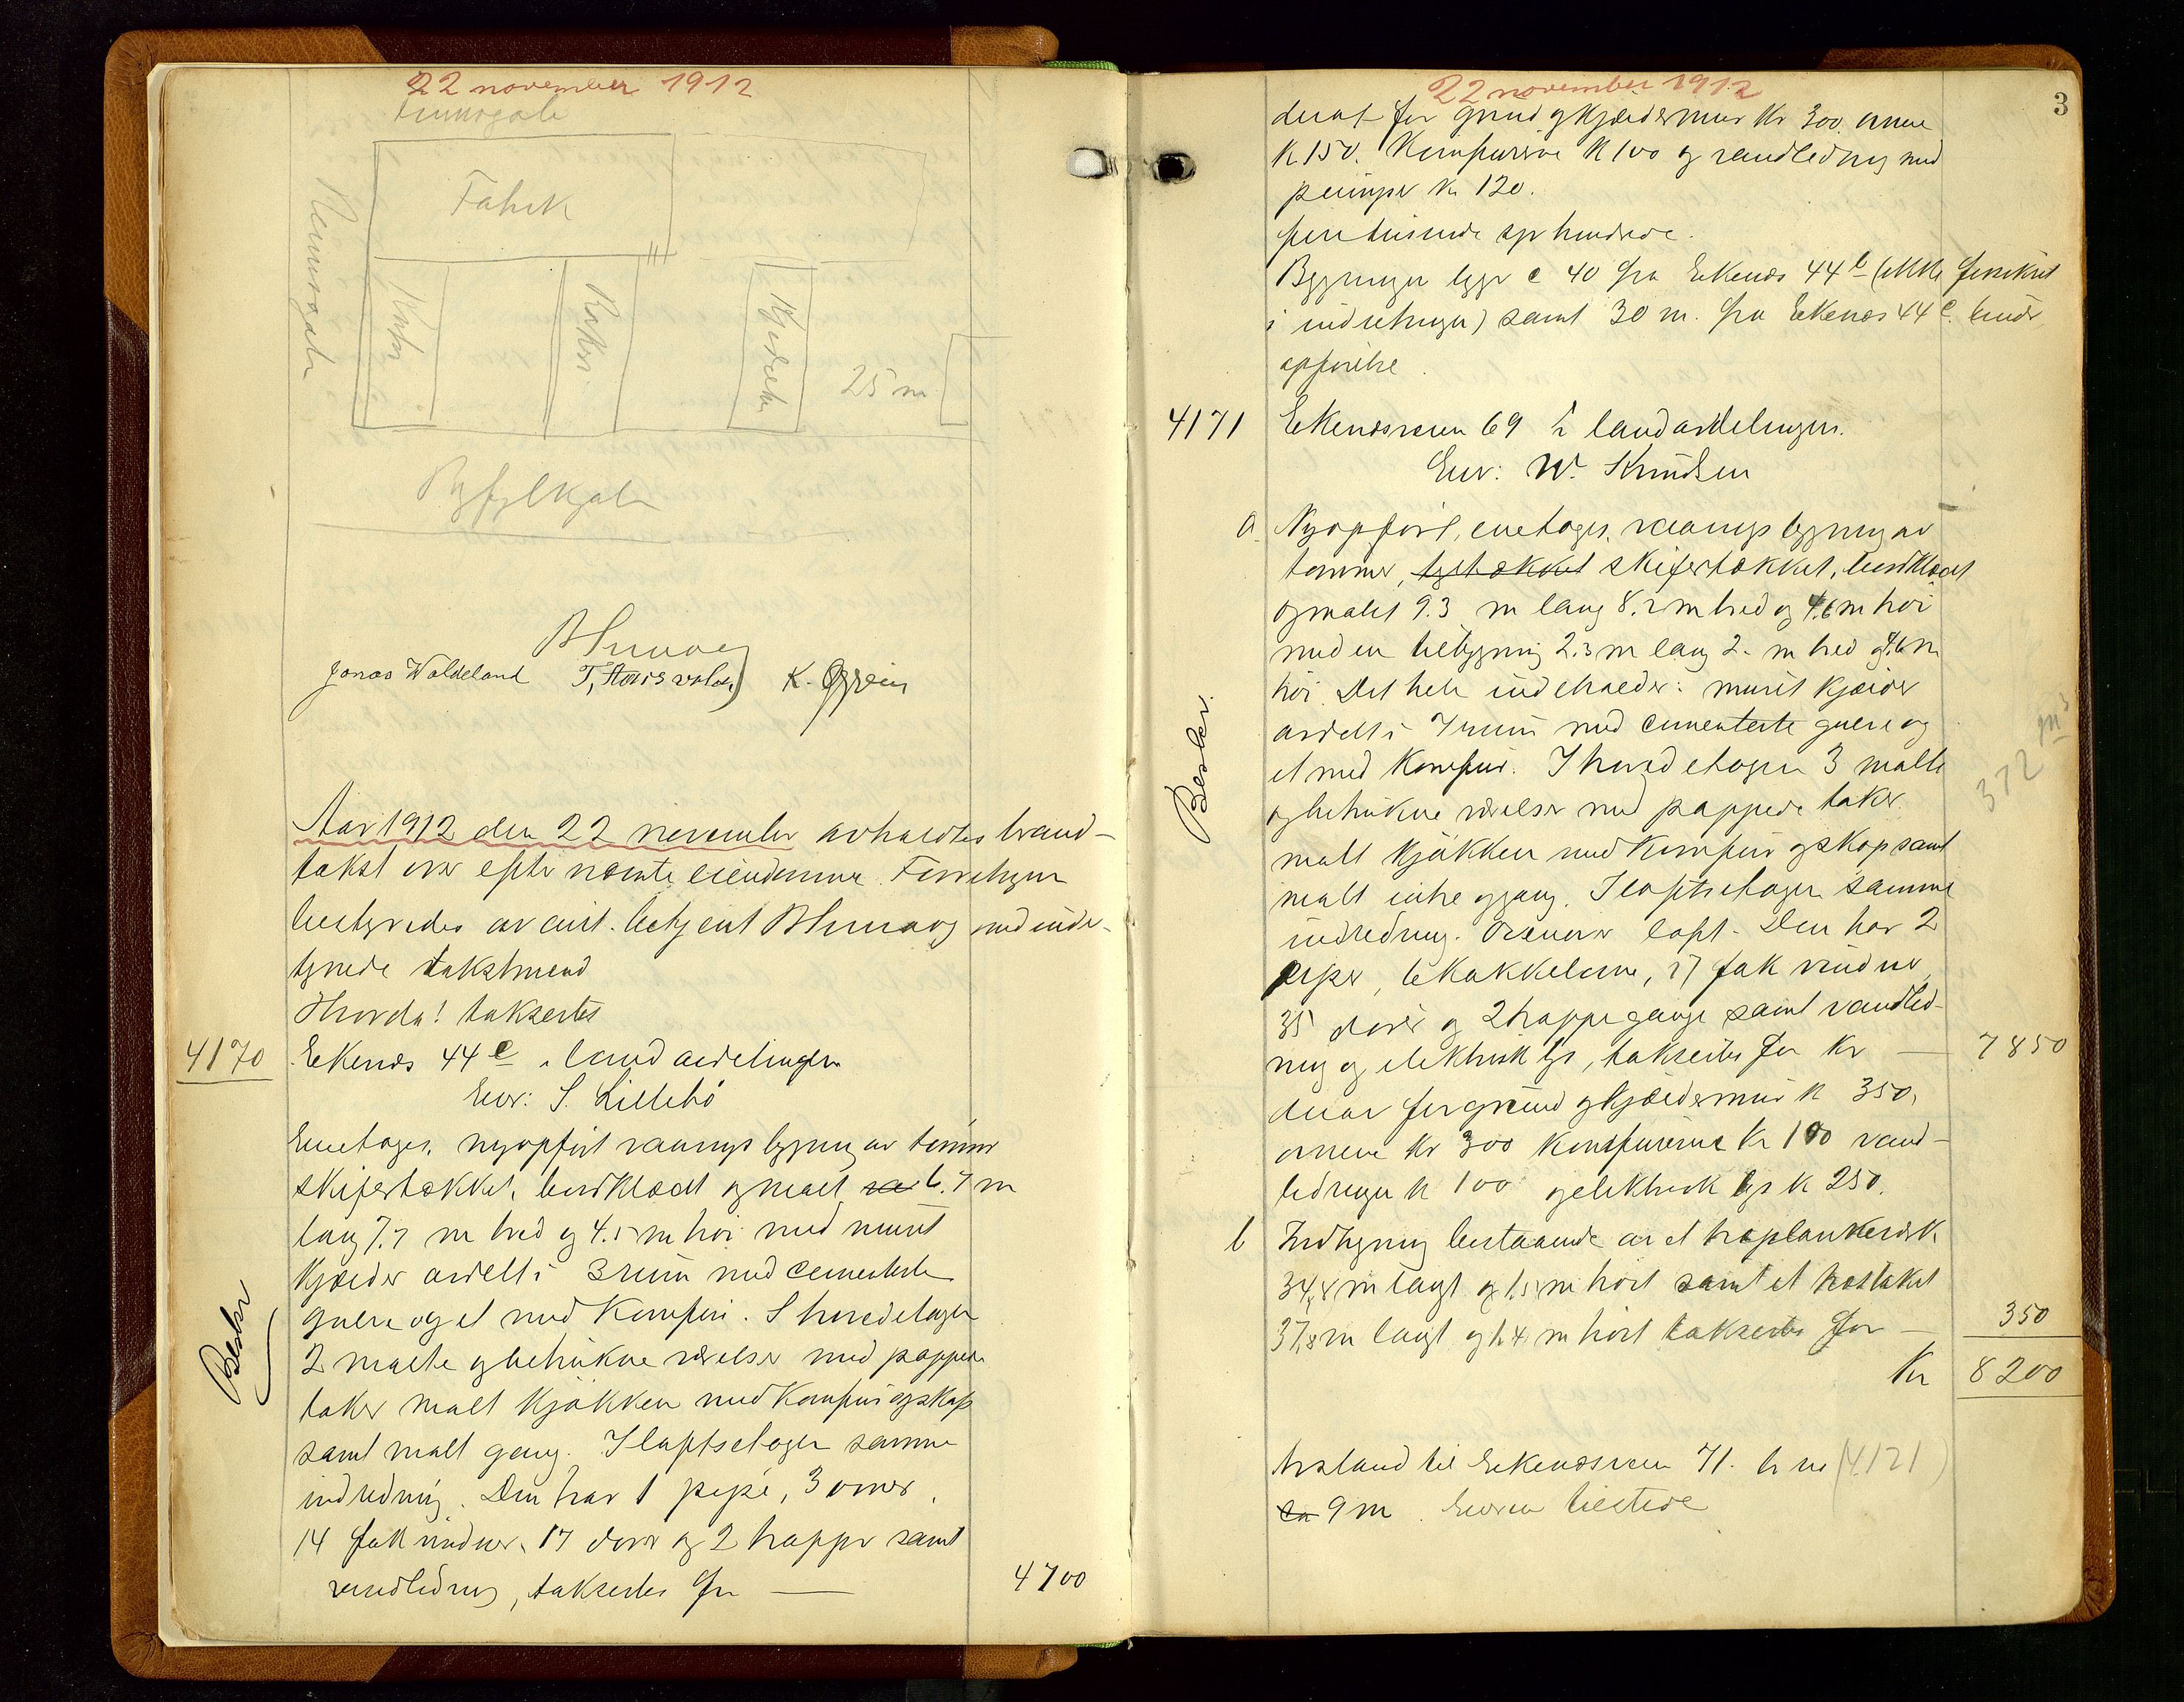 22 november 1912
Fabrik
25 m
Ryfylkgate
Jonas Waldeland K.
Aar 1912 den 22 november avholdtes brand-
takst over efter nævnte eiendomme. Forretningen
bestyredes av aut. betjent med inde-
tjnede takstmænd
Hvorda! takseertes
4170 Eekenæs 44 e i landavdelingen
Eier: S. Lillebö
Enetages, nyopført vaanings bygning av tømmer
skifertækket, bordklædt og malt 6.7 m
lang 7.7 m bred og 4.5 m høi med muret
kjælder avdelt i 3 rum med cementerte
gulve og et med komfur. I hovedetagen
Beskr 2 malte og betrukne værelser med pappede
taker malt kjøkken med komfur og skap
samt malt gang. I loftsetagen samme
indredning. Den har 1 pipe, 3 ovner,
14 fak vinduer, 17 dører og 2 trapper samt
vandledning, taksertes for — 4700
22 november 1912
3
derav for grund og kjældermur kr 300. ovnene
k 150. Komfurerne k 100 og vandledning med
pumper kr 120.
fire tusinde syv hundrede.
Bygningen ligger c 40 fra Eekenæs 44 b (ikke forsikret
i indretningen) samt 30 m. fra Eekenæs 44 c. under
opførelse.
4171 Eekenæsveien 69 i landavdelingen.
Eier: W. Knudsen
a Nyopført, enetages, vaanings bygning av
tømmer, tegltækket skifertækket, bordklædt
og malet 9.3 m lang 8.2 m bred og 4.6 m høi
med en tilbygning 2.3 m lang 2. m bred og 4.6 m
høi. Det hele indeholder: muret kjælder
avdelt i 7 rum med cementerte gulve og
et med komfur. I hovedetagen 3 malte
og betrukne værelser med pappede taker
Beskr.
372 m³
malt kjøkken med komfur og skap samt
malt indre gang. I loftsetagen samme
indredning. Ovenover loft. Den har 2
piper, 6 kakkelovne, 27 fak vinduer,
35 dører og 2 trappegange samt vandled-
ning og elektrisk lys, taksertes for kr — 7850
derav for grund og kjældermur k 350,
ovnene kr 300 komfurerne kr 100 vand-
ledningen k 100 og elektrisk lys k 250.
b Indhegning bestaaende av et træplankeværk
34,8 m langt og 1,5 m høit samt et
37,8 m langt og 1.4 m høit taksertes for — 350
Kr 8200
Avstand til Eekenæsveien 71. (4121)
ca 9 m. Eieren tilstede